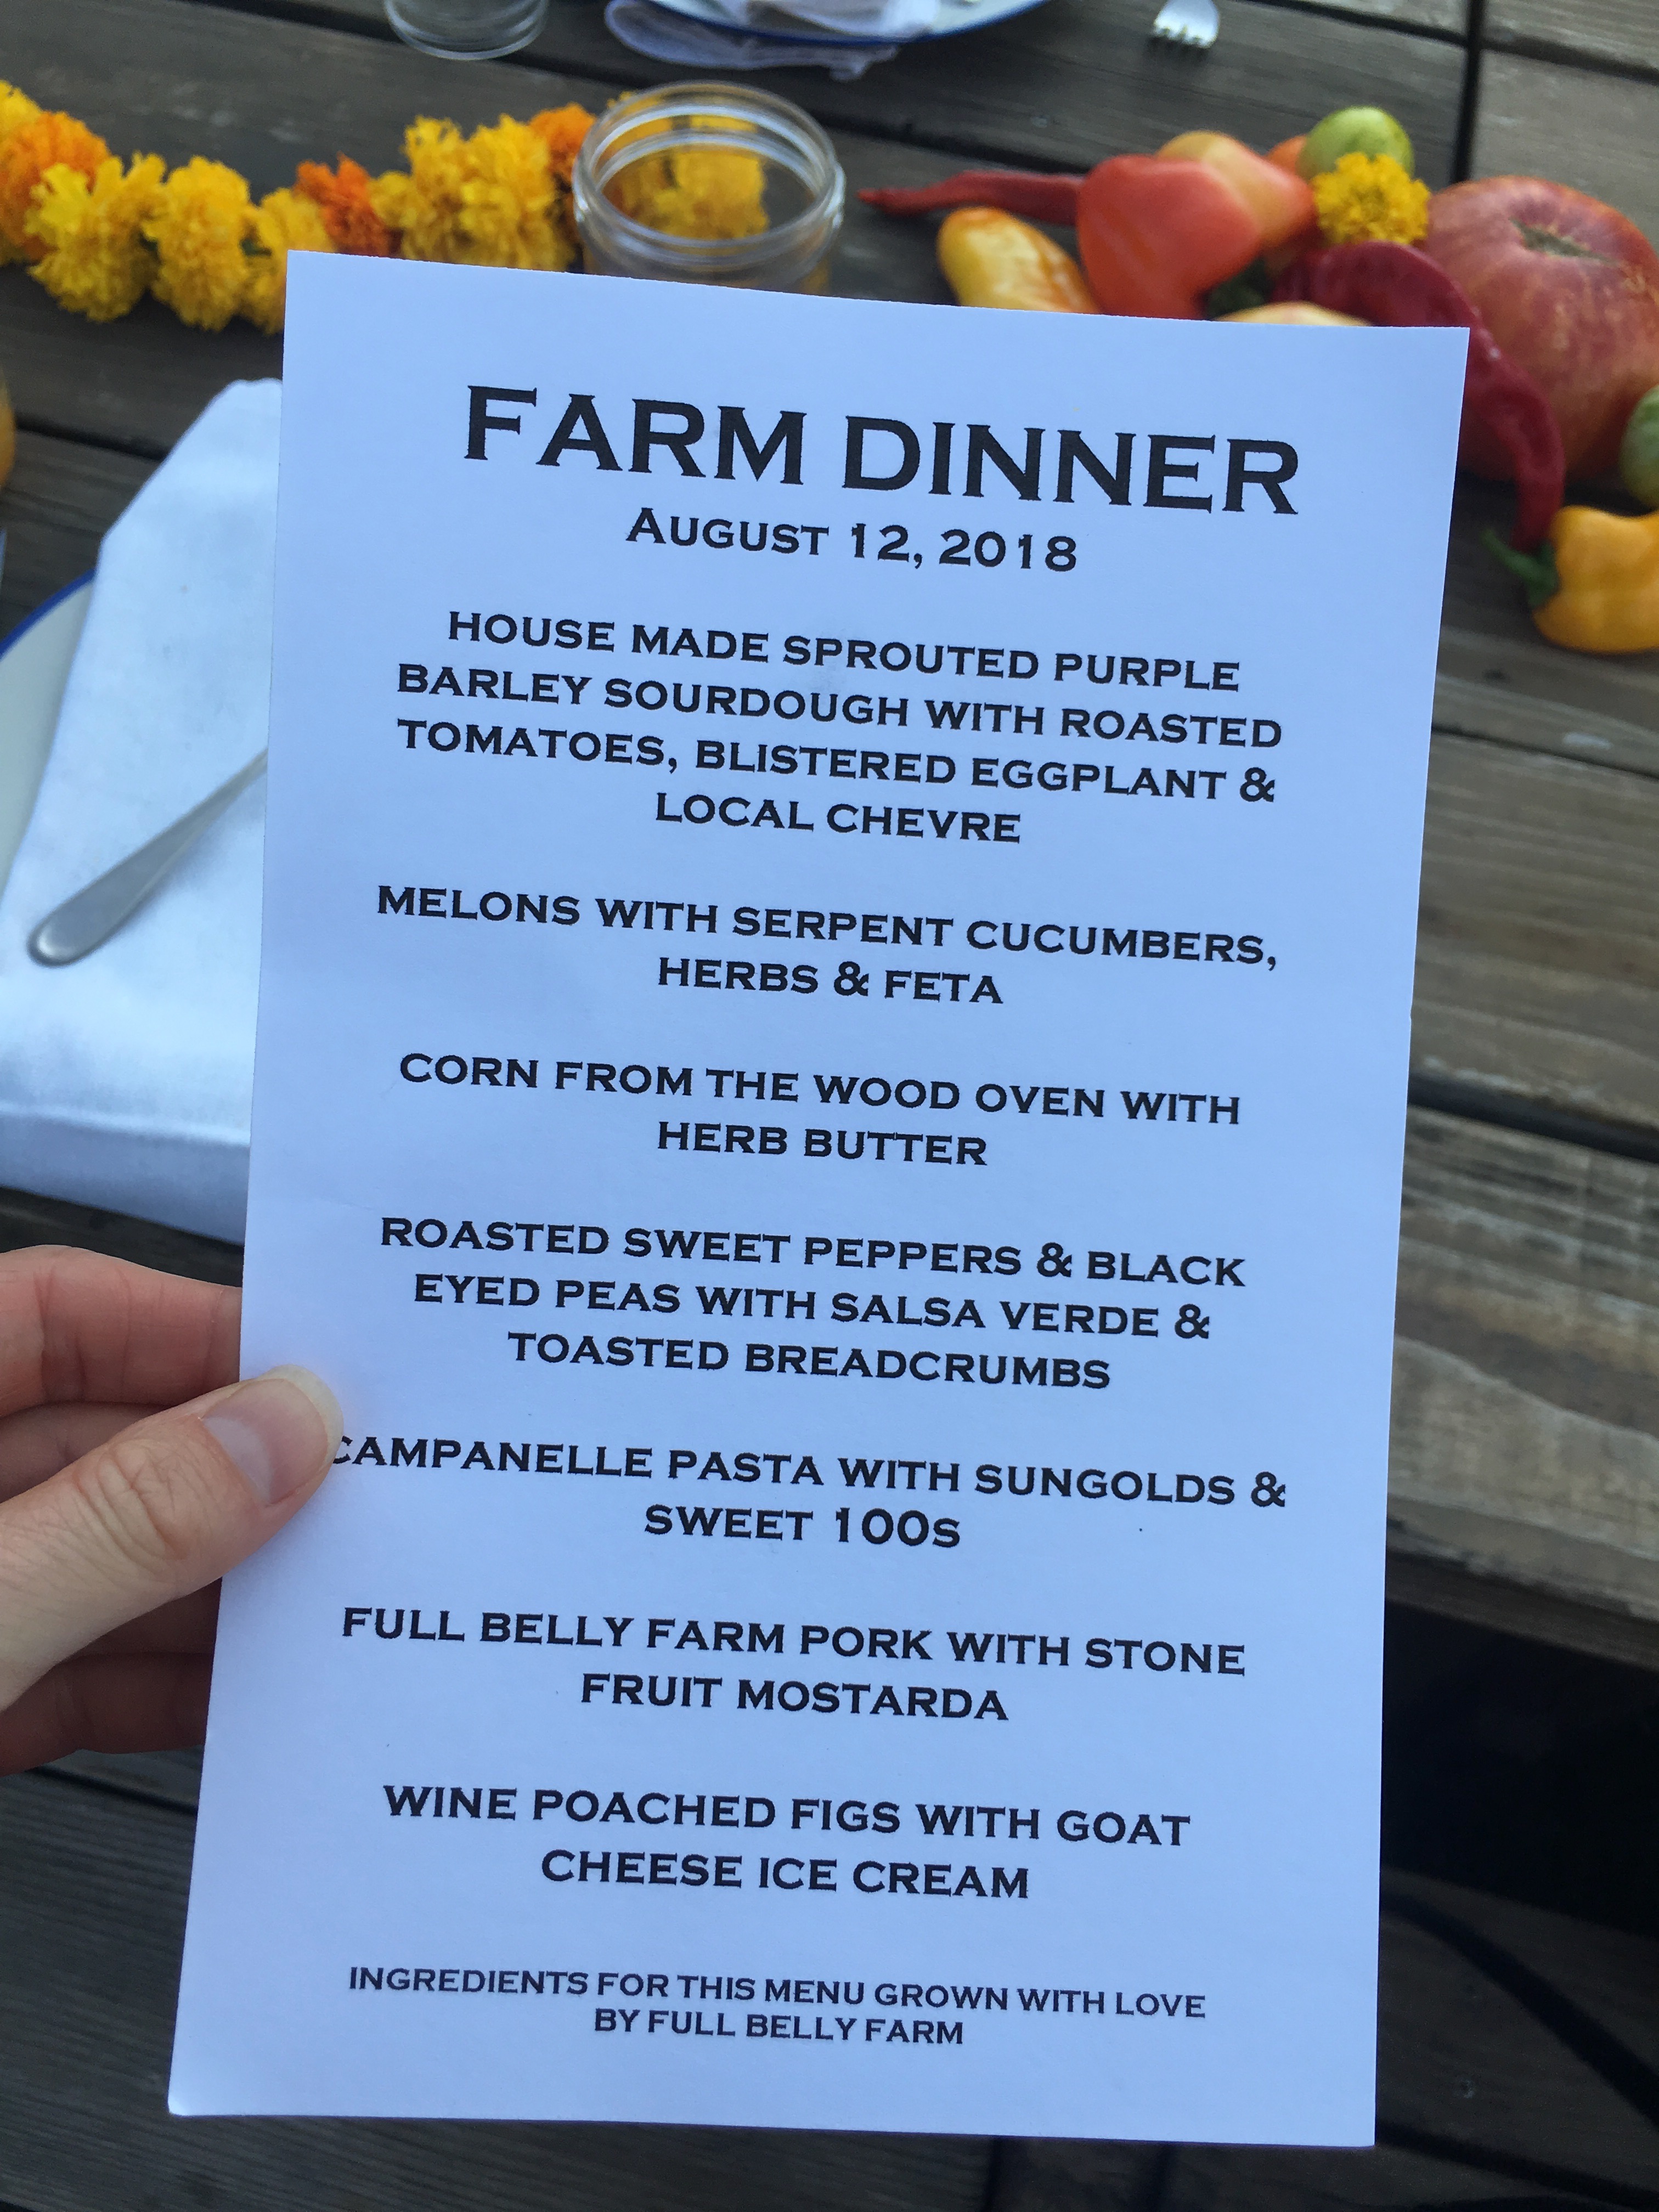 FARM DINNER
AUGUST 12, 2018
HOUSE MADE SPROUTED PURPLE
BARLEY SOURDOUGH WITH ROASTED
TOMATOES, BLISTERED EGGPLANT &
LOCAL CHEVRE
MELONS WITH SERPENT CUCUMBERS,
HERBS & FETA
CORN FROM THE WOOD OVEN WITH
HERB BUTTER
ROASTED SWEET PEPPERS & BLACK
EYED PEAS WITH SALSA VERDE &
TOASTED BREADCRUMBS
CAMPANELLE PASTA WITH SUNGOLDS &
SWEET 100S
FULL BELLY FARM PORK WITH STONE
FRUIT MOSTARDA
WINE POACHED FIGS WITH GOAT
CHEESE ICE CREAM
INGREDIENTS FOR THIS MENU GROWN WITH LOVE
BY FULL BELLY FARM